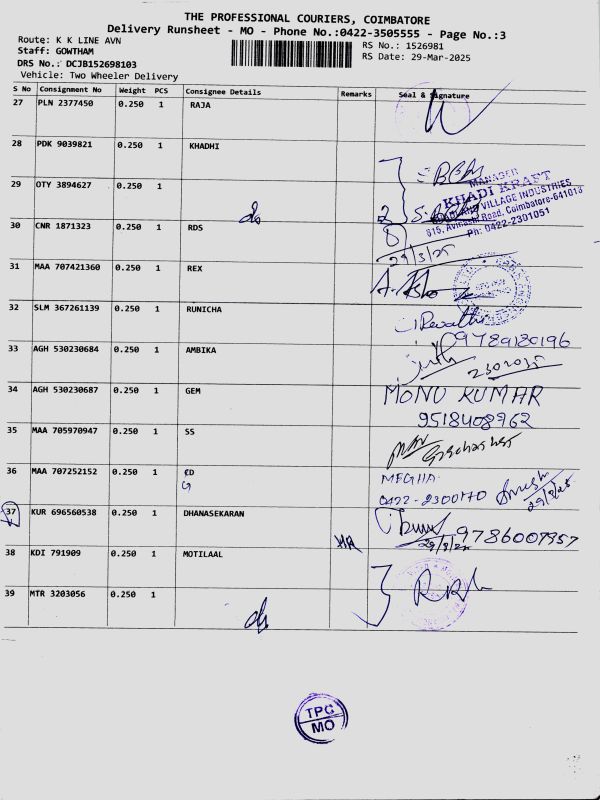 THE PROFESSIONAL COURIERS, COIMBATORE
Delivery Runsheet - MO - Phone No.:0422-3505555 - Page No.:3
Route: K K LINE AVN
Staff: GOWTHAM
DRS No.: DCJB152698103
Vehicle: Two Wheeler Delivery
RS No.: 1526981
RS Date: 29-Mar-2025
S No Consignment No Weight PCS Consignee Details Remarks Seal & Signature
27 PLN 2377450 0.250 1 RAJA
28 PDK 9039821 0.250 1 KHADHI
MANAGER
KHADI KRAFT
VILLAGE INDUSTRIES
615, Avinashi Road, Coimbatore-641018
Ph: 0422-2301051
29 OTY 3894627 0.250 1 do
30 CNR 1871323 0.250 1 RDS
29/3/25
31 MAA 707421360 0.250 1 REX
32 SLM 367261139 0.250 1 RUNICHA
Revathi
9789180196
33 AGH 530230684 0.250 1 AMBIKA
34 AGH 530230687 0.250 1 GEM MONU KUMAR
9518408762
35 MAA 705970947 0.250 1 SS
36 MAA 707252152 0.250 1 CD
G
MEGHA
0422-2300170
29/3/25
37 KUR 696560538 0.250 1 DHANASEKARAN
9786007957
29/3/25
38 KDI 791909 0.250 1 MOTILAAL
39 MTR 3203056 0.250 1 do
TPC
MO